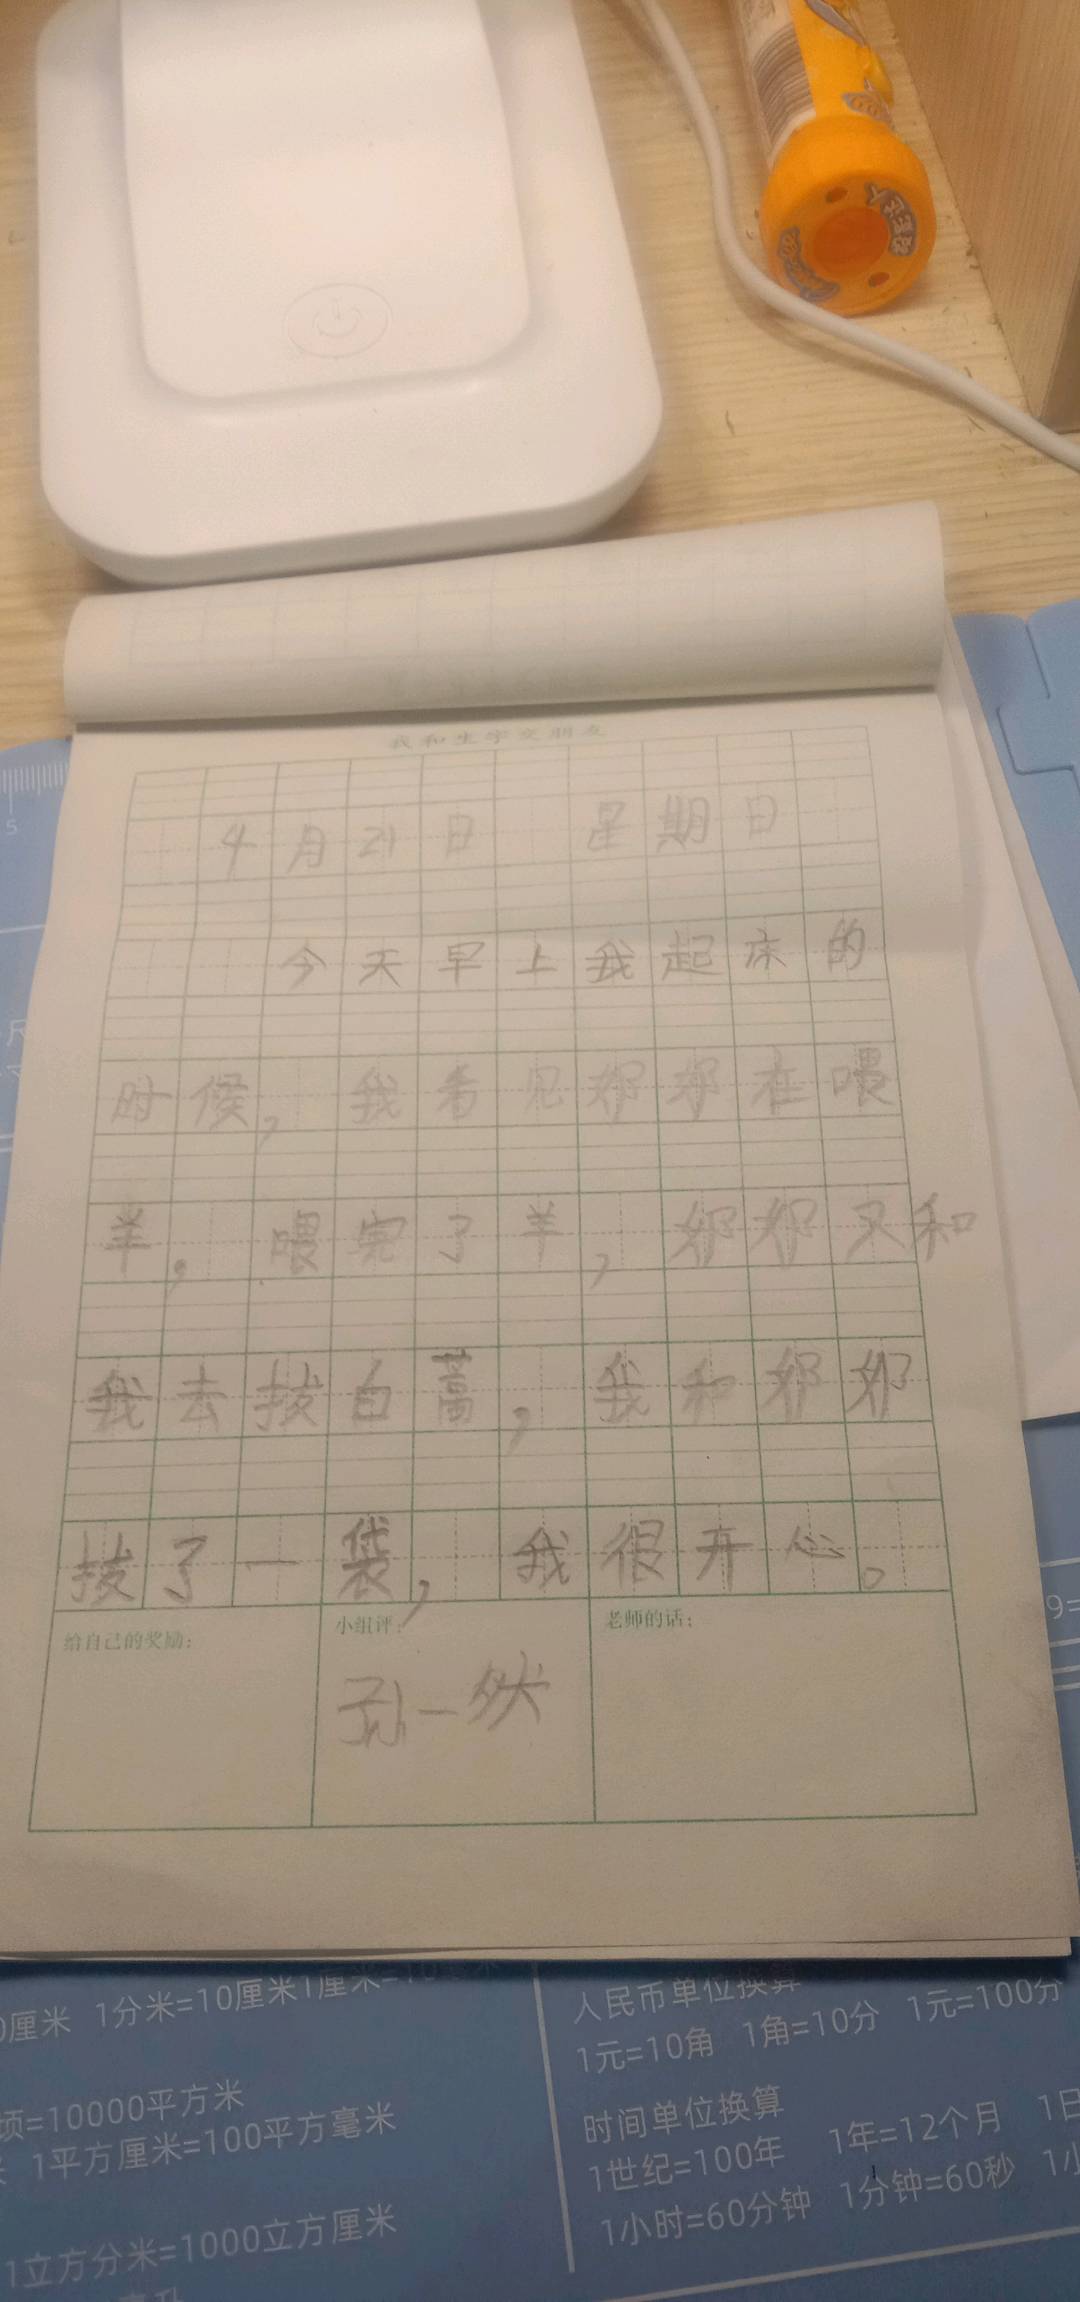 我和生字交朋友
4月21日 星期日
今天早上我起床的
时候，我看见奶奶在喂
羊，喂完了羊，奶奶又和
我去拔白蒿，我和奶奶
拔了一袋，我很开心。
给自己的奖励：
小组评：
老师的话：
孙一然
5
9=
0厘米 1分米=10厘米1厘米=10
顷=10000平方米
1平方厘米=100平方毫米
1立方分米=1000立方厘米
人民币单位换算
1元=10角 1角=10分 1元=100分
时间单位换算
1世纪=100年 1年=12个月 1日
1小时=60分钟 1分钟=60秒 1小